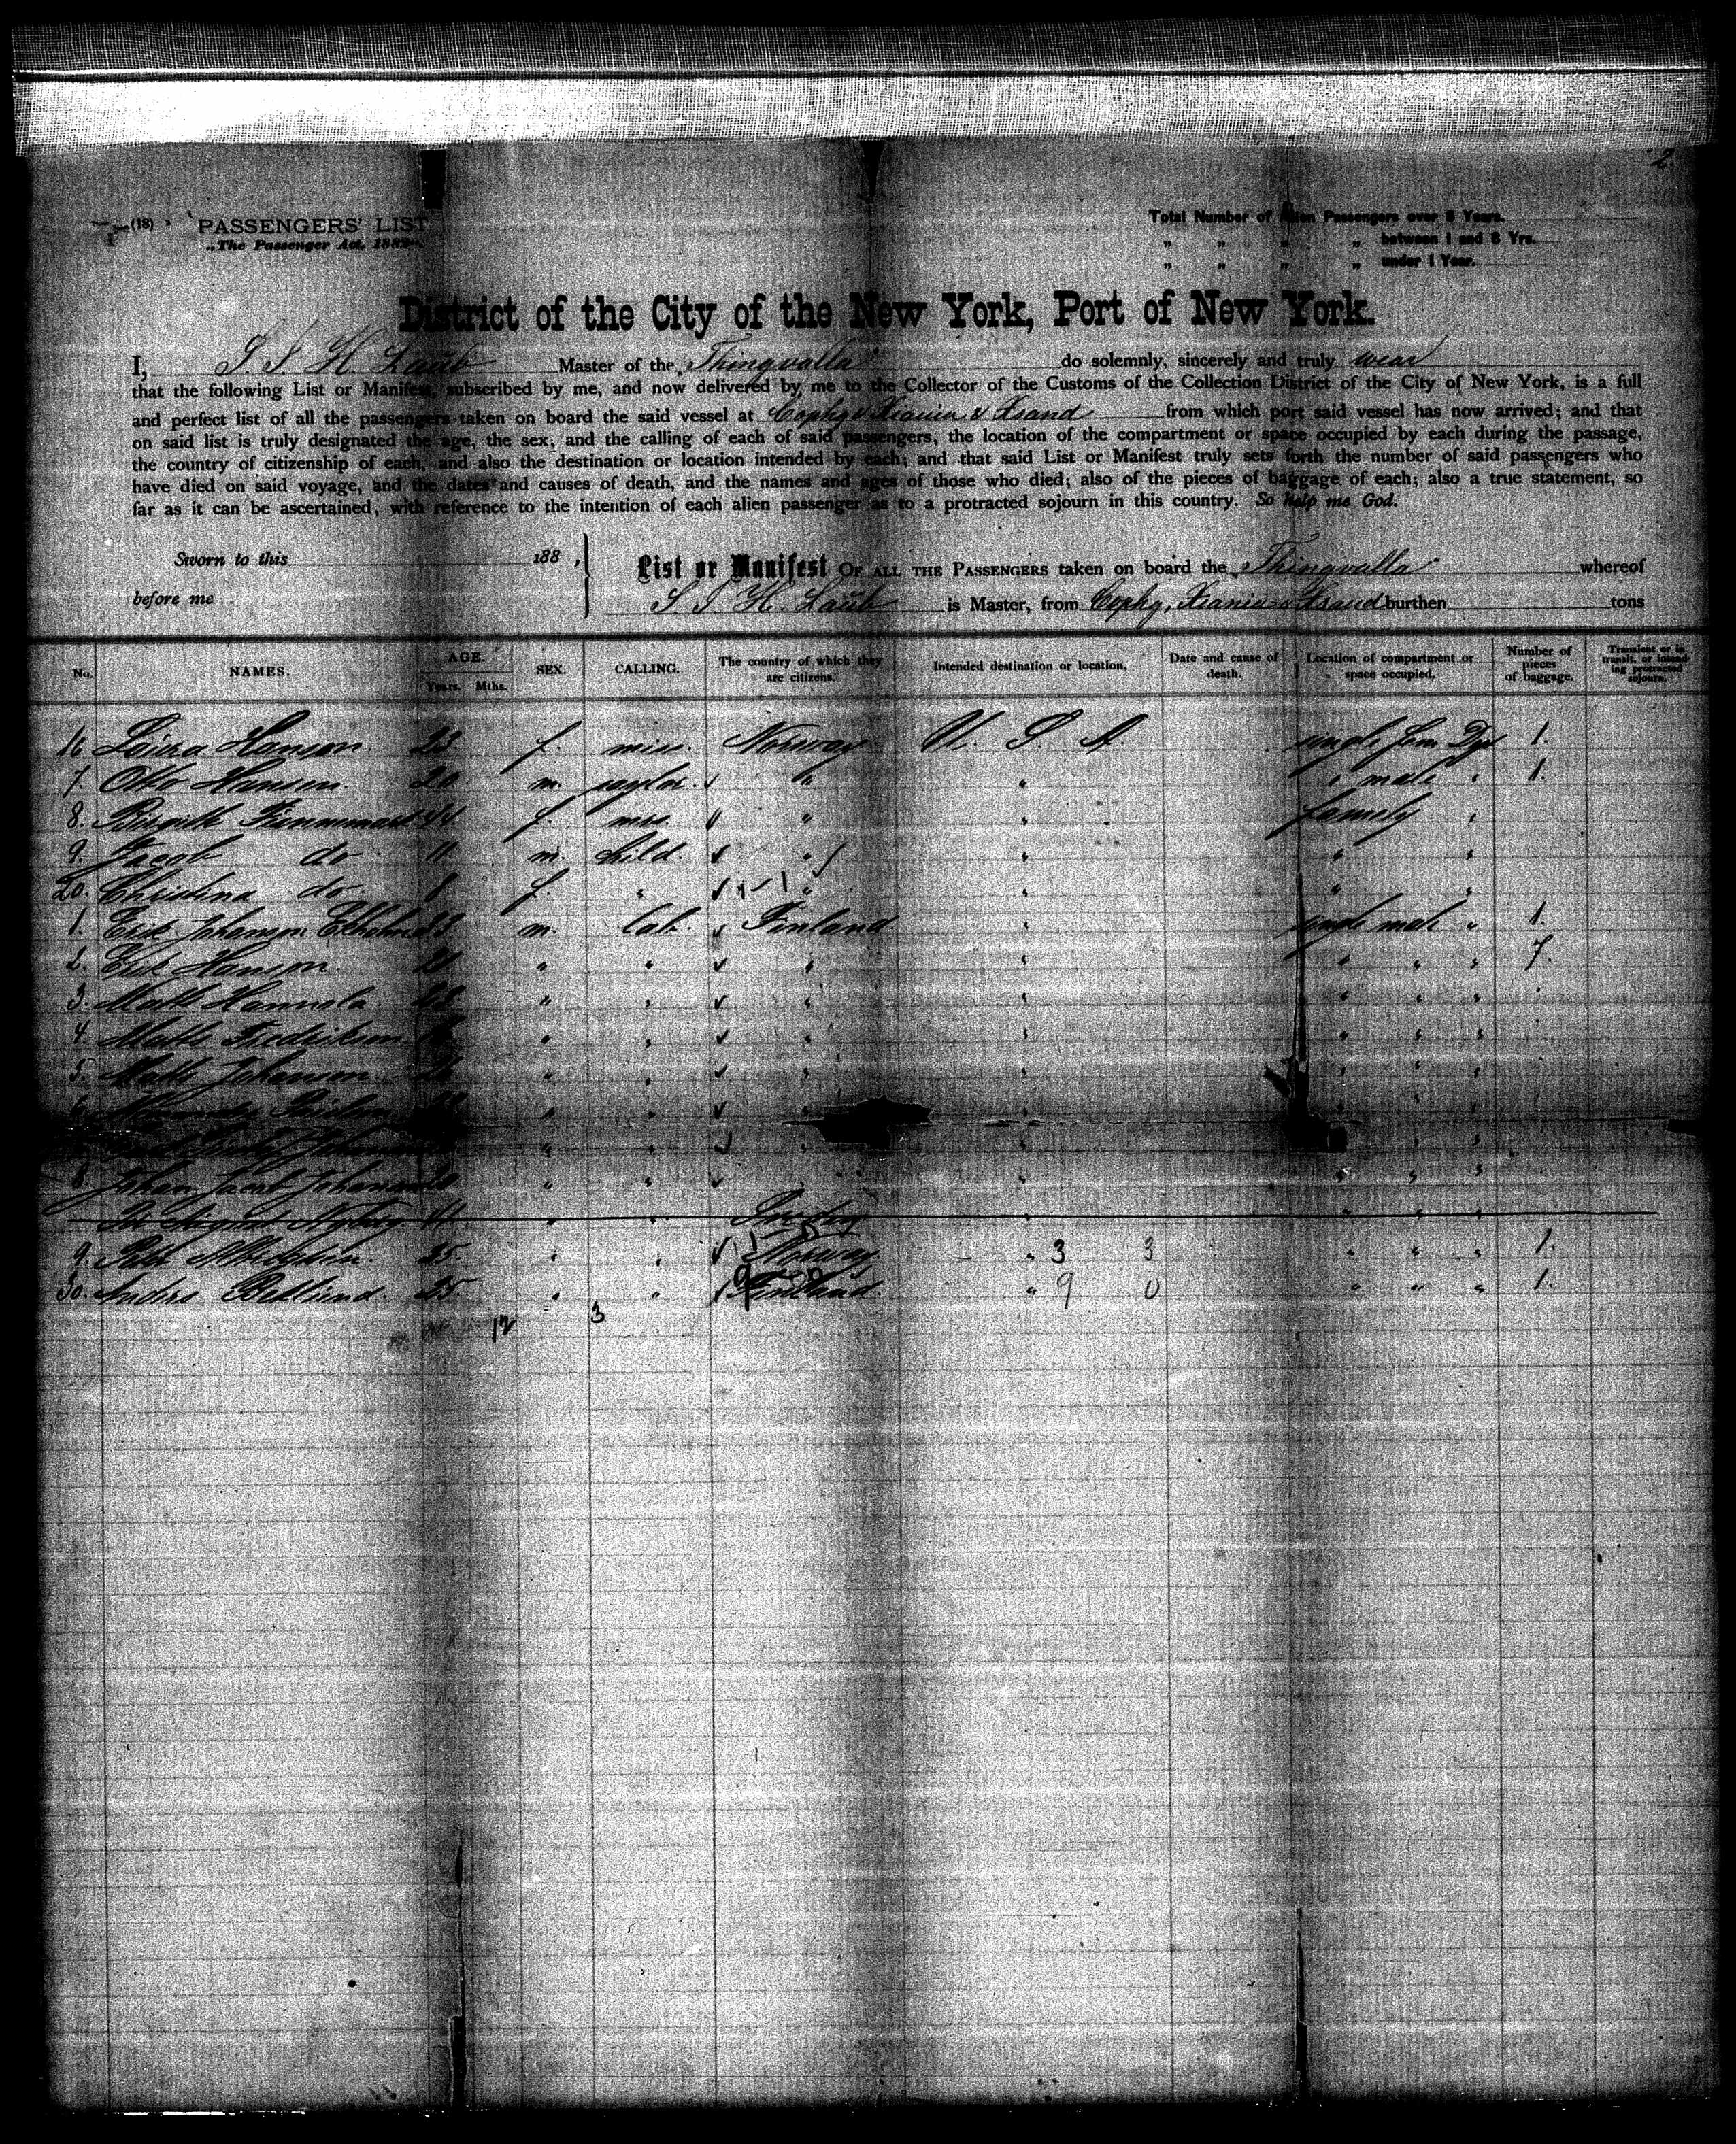 2.
(18) PASSENGERS' LIST
„The Passenger Act. 1882".
Total Number of Alien Passengers over 8 Years.
„ „ „ „ between 1 and 8 Yrs.
„ „ „ „ under 1 Year.
District of the City of the New York, Port of New York.
I, S. T. H. Laüb Master of the „Thingvalla" do solemnly, sincerely and truly swear
that the following List or Manifest, subscribed by me, and now delivered by me to the Collector of the Customs of the Collection District of the City of New York, is a full
and perfect list of all the passengers taken on board the said vessel at Cophg & Xiania & Xsand from which port said vessel has now arrived; and that
on said list is truly designated the age, the sex, and the calling of each of said passengers, the location of the compartment or space occupied by each during the passage,
the country of citizenship of each, and also the destination or location intended by each; and that said List or Manifest truly sets forth the number of said passengers who
have died on said voyage, and the dates and causes of death, and the names and ages of those who died; also of the pieces of baggage of each; also a true statement, so
far as it can be ascertained, with reference to the intention of each alien passenger as to a protracted sojourn in this country. So help me God.
Sworn to this 188 ,
List or Manifest OF ALL THE PASSENGERS taken on board the „Thingvalla" whereof
before me
S. T. H. Laüb is Master, from Cophg, Xiania & Xsand burthen tons
No. NAMES. AGE. Years. Mths. SEX. CALLING. The country of which they are citizens. Intended destination or location. Date and cause of death. Location of compartment or space occupied. Number of pieces of baggage. Transient or in transit, or intending protracted sojourn.
16 Laura Hanson 23 f. miss. Norway U. S. A. single fem. 1.
7. Otto Hansen 20 m. " " " male " 1.
8. Birgith 44 f. mrs. " " family "
9. Jacob do 11. m. child. " " " "
20. Christina do 8 f. " " " " "
1. Erik Johanson 23 m. lab. Finland " single male " 1.
2. Erik Hanson " " " " " " " 7.
3. Matts Hannula 28 " " " " " " "
4. Matts Fredrikson " " " " " " "
5. Matts Johanson " " " " " " "
6. " " " " " " "
" " " " " " "
8. Johan Jacob Johanson 20 " " " " " " "
August Nyberg " " " " " "
9. 25. " " Norway " 3 3 " " " 1.
30. Anders 25 " " Finland " 9 0 " " " 1.
12 3